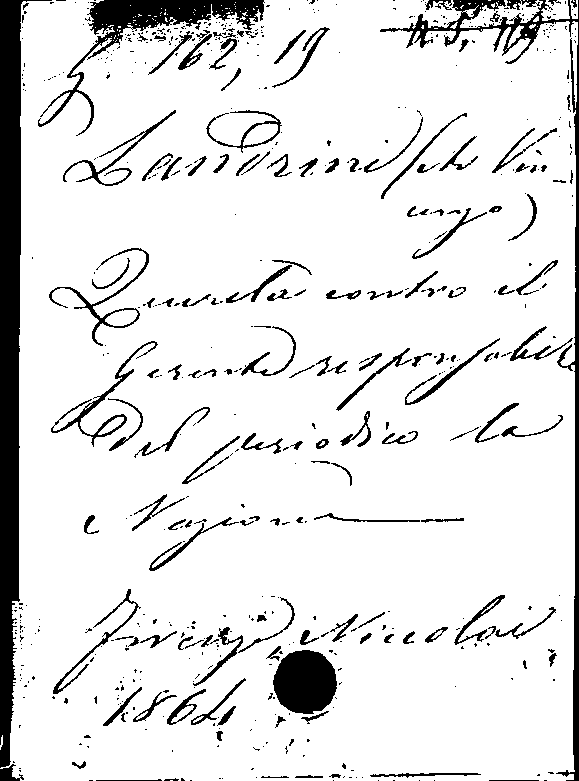 G. 162, 19 N.S. 119
Landrini (che Vin-
cenzo)
Querela contro il
Gerente responsabile
del periodico la
Nazione
Firenze, Niccolai
1864